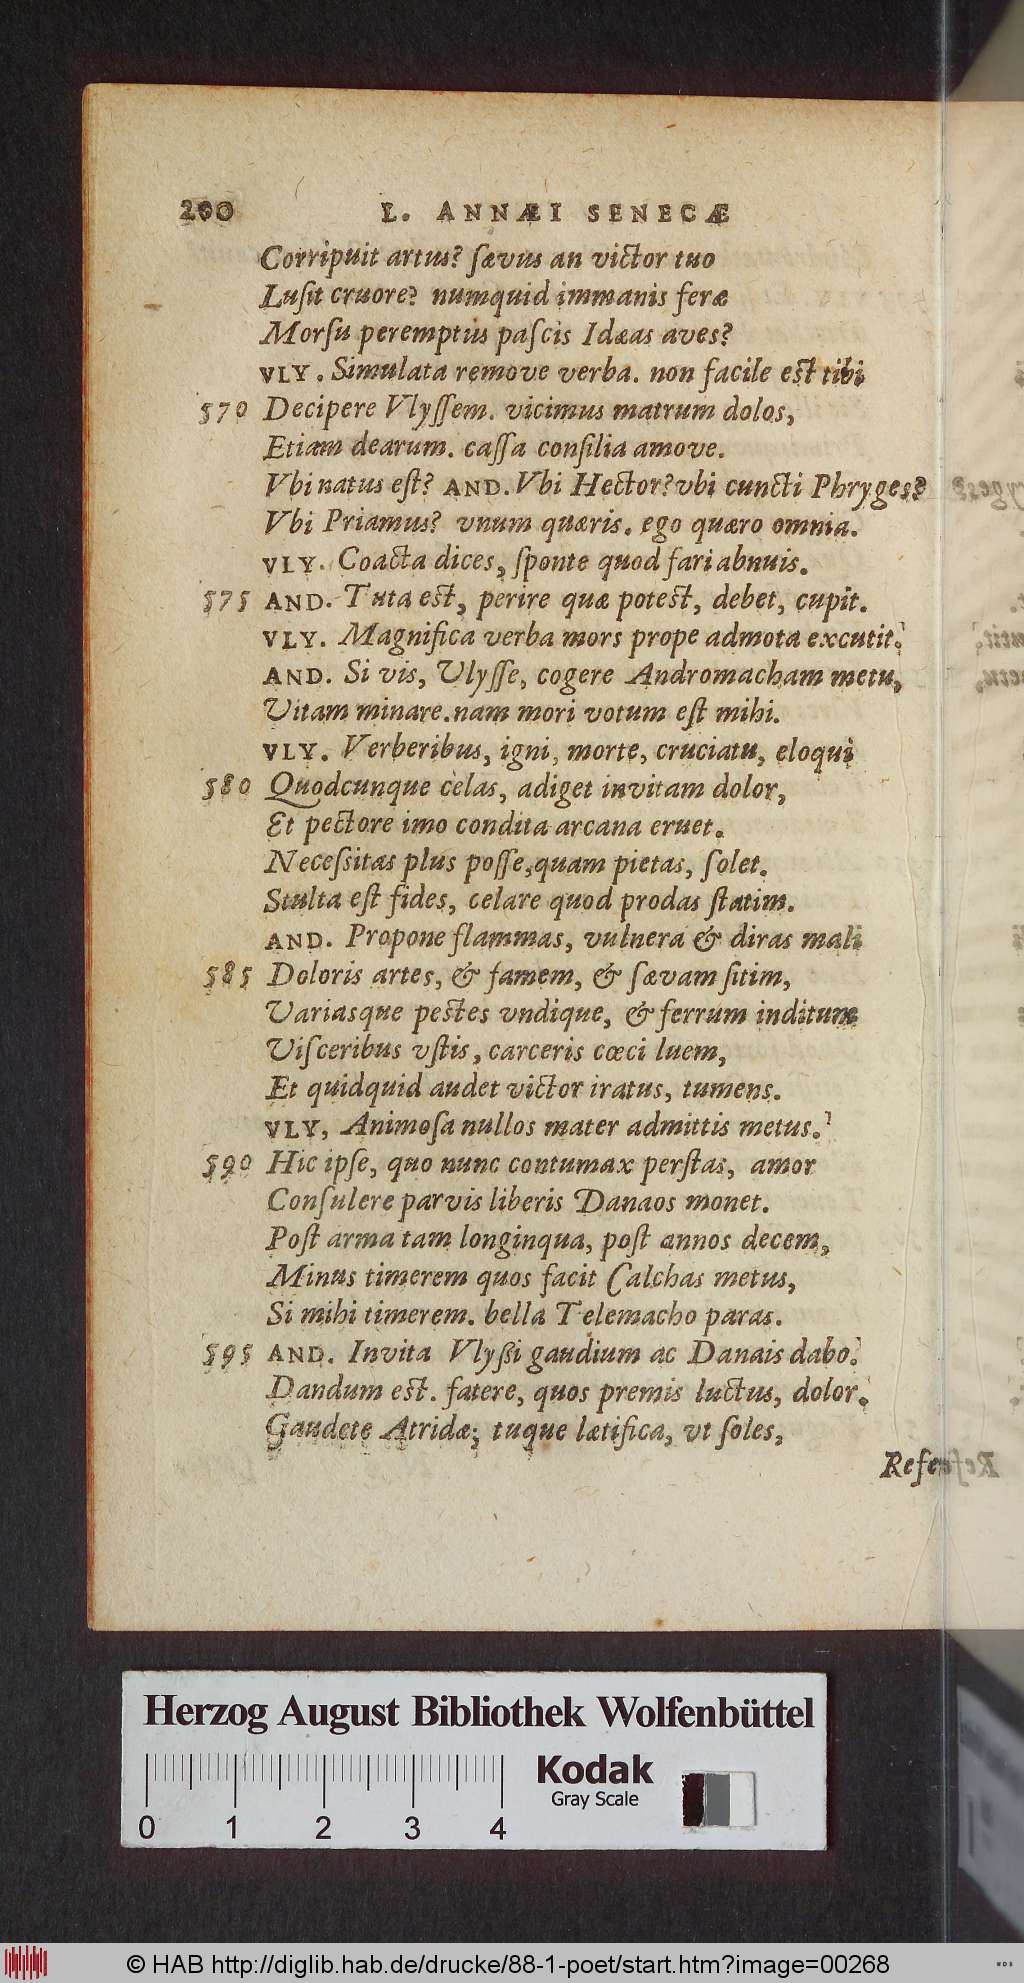 200 L. ANNÆI SENECÆ
Corripuit artus? ſævus an victor tuo
Luſit cruore? numquid immanis feræ
Morſu peremptus paſcis Idæas aves?
VLY. Simulata remove verba. non facile est tibi
570 Decipere Vlyſſem. vicimus matrum dolos,
Etiam dearum. caſſa conſilia amove.
Vbi natus eſt? AND. Vbi Hector? vbi cuncti Phryges?
Vbi Priamus? vnum quæris. ego quæro omnia.
VLY. Coacta dices, ſponte quod fari abnuis.
575 AND. Tuta est, perire quæ potest, debet, cupit.
VLY. Magnifica verba mors prope admota excutit.
AND. Si vis, Ulyſſe, cogere Andromacham metu,
Vitam minare. nam mori votum eſt mihi.
VLY. Verberibus, igni, morte, cruciatu, eloqui
580 Quodcunque celas, adiget invitam dolor,
Et pectore imo condita arcana eruet.
Neceſsitas plus poſſe, quam pietas, ſolet.
Stulta eſt fides, celare quod prodas ſtatim.
AND. Propone flammas, vulnera & diras mali
585 Doloris artes, & famem, & ſævam ſitim,
Variasque pestes vndique, & ferrum inditum
Viſceribus vſtis, carceris cœci luem,
Et quidquid audet victor iratus, tumens.
VLY, Animoſa nullos mater admittis metus.
590 Hic ipſe, quo nunc contumax perſtas, amor
Conſulere parvis liberis Danaos monet.
Poſt arma tam longinqua, poſt annos decem,
Minus timerem quos facit Calchas metus,
Si mihi timerem. bella Telemacho paras.
595 AND. Invita Vlyßi gaudium ac Danais dabo.
Dandum est. fatere, quos premis luctus, dolor.
Gaudete Atridæ; tuque lætifica, vt ſoles,
Herzog August Bibliothek Wolfenbüttel
Kodak
Gray Scale
0 1 2 3 4
© HAB http://diglib.hab.de/drucke/88-1-poet/start.htm?image=00268